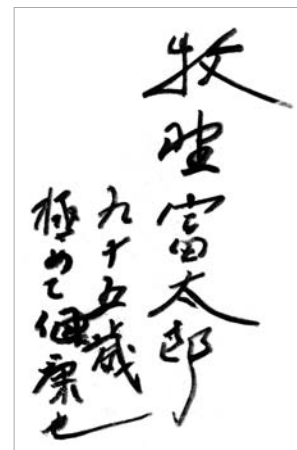 牧野富太郎
九十五歳
極めて健康也